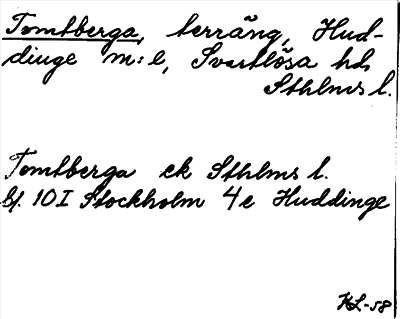 Tomtberga, terräng, Hud-
dinge m:e, Svartlösa hd,
Sthlms l.
Tomtberga ek Sthlms l.
bl. 10 I Stockholm 4e Huddinge
KL-58